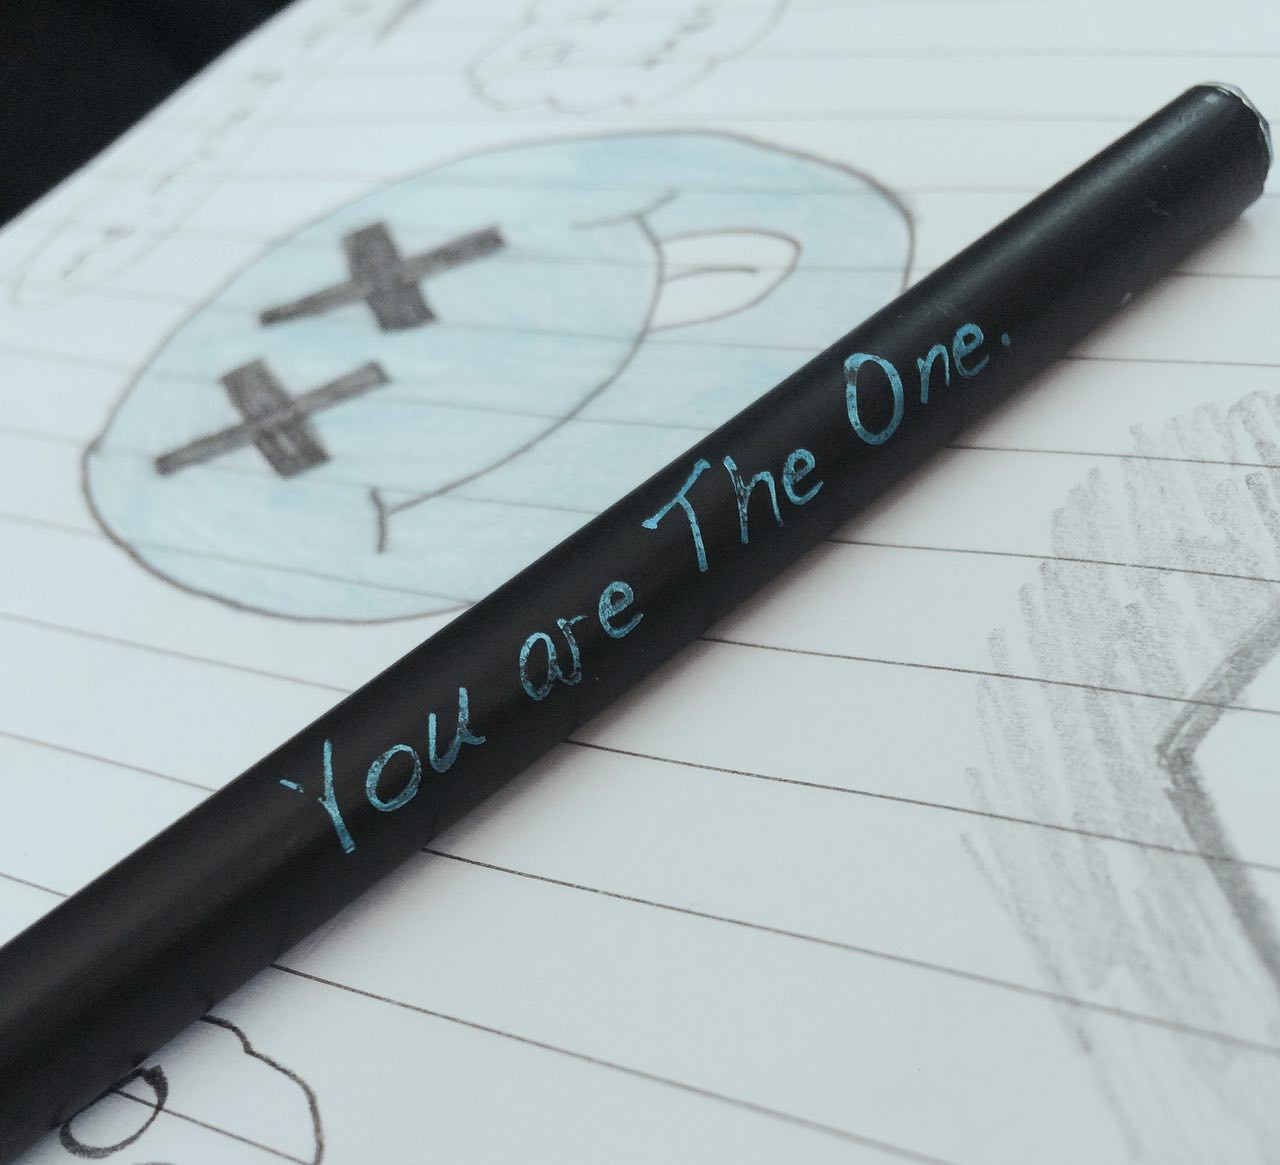 You are The One.